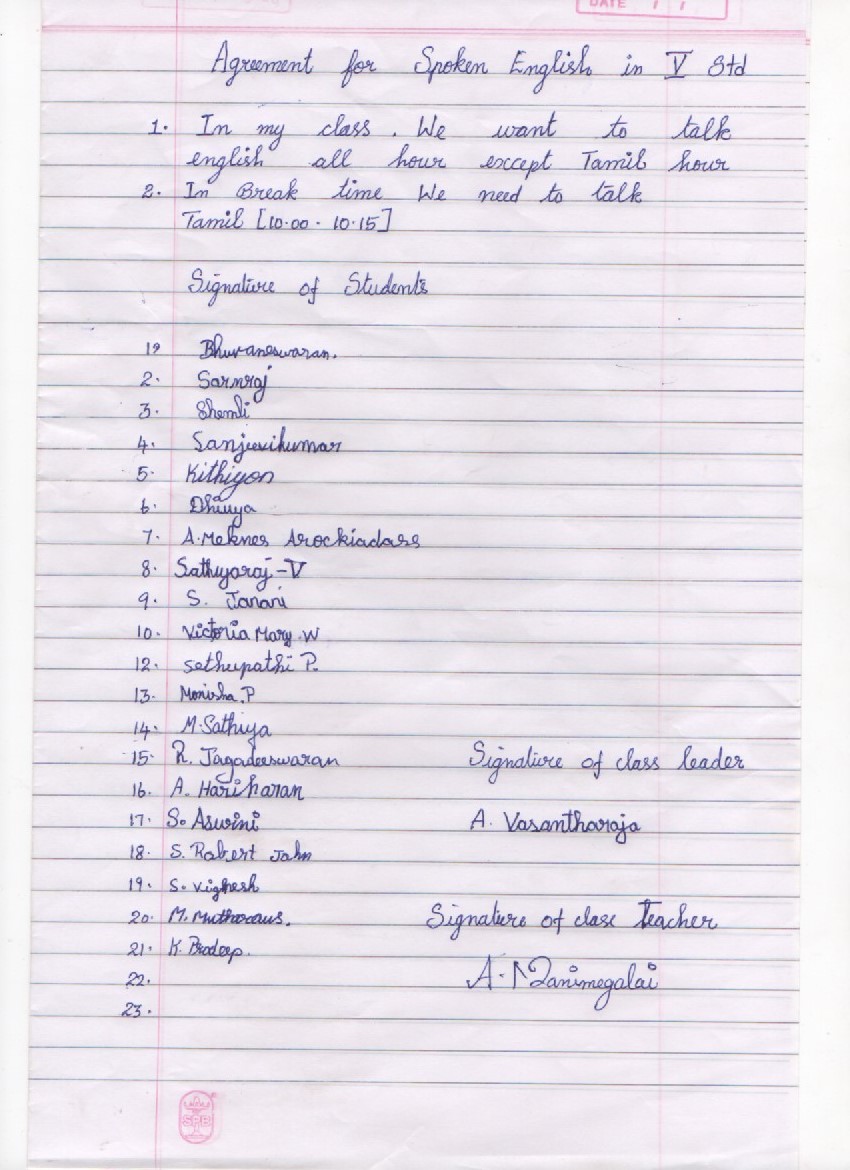 DATE / /
Agreement for Spoken English in V Std
1. In my class. We want to talk
english all hour except Tamil hour
2. In Break time We need to talk
Tamil [10.00 - 10.15]
Signature of Students
1. Bhuvaneswaran.
2. Samraj
3. Shemli
4. Sanjeevikumar
5. Kithiyon
6. Dhivya
7. A. Meknes Arockiadass
8. Sathiyaraj - V
9. S. Janani
10. Victoria Mary. W
12. Sethupathi P.
13. Monisha. P
14. M. Sathiya
15. R. Jagadeeswaran
Signature of class leader
16. A. Hariharan
17. S. Aswini
A. Vasantharaja
18. S. Robert John
19. S. Vighesh
20. M.
Signature of class Teacher
21. K. Pradeep.
22.
A. Manimegalai
23.
SPB